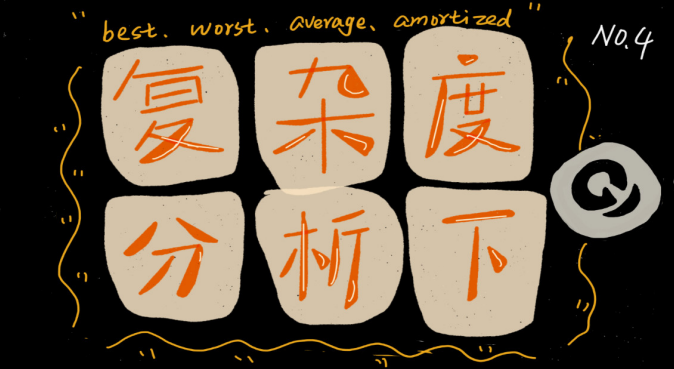 best. worst. average、amortized
NO.4
复杂度
分析下